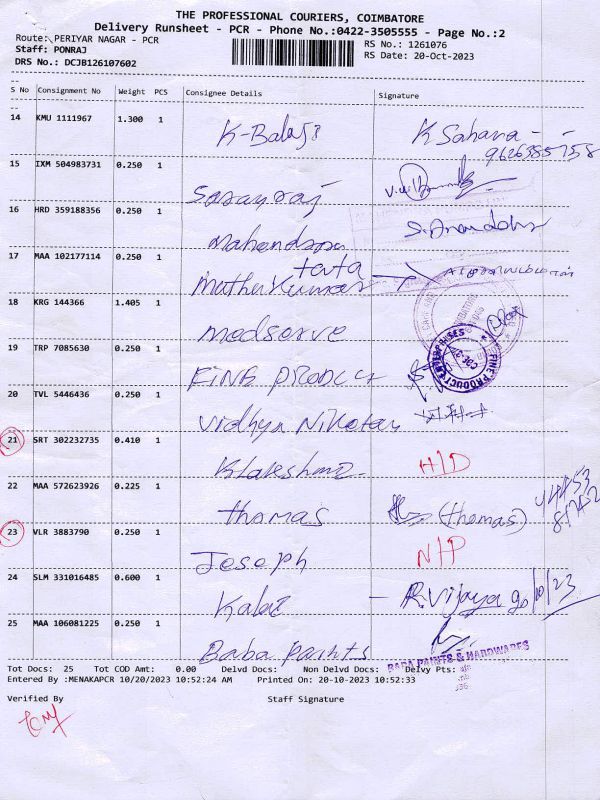 THE PROFESSIONAL COURIERS, COIMBATORE
Delivery Runsheet - PCR - Phone No.:0422-3505555 - Page No.:2
Route: PERIYAR NAGAR - PCR
RS No.: 1261076
Staff: PONRAJ
RS Date: 20-Oct-2023
DRS No.: DCJB126107602
S No Consignment No Weight PCS Consignee Details Signature
14 KMU 1111967 1.300 1 K-Balaji K Sahana -
9626585758
15 IXM 504983731 0.250 1 Saravraj
16 HRD 359188356 0.250 1 Mahendra S. Anandohr
tata
17 MAA 102177114 0.250 1 Muthukumar
18 KRG 144366 1.405 1 Medserve
19 TRP 7085630 0.250 1 Fine Product FINE PRODUCT ENTERPRISES
20 TVL 5446436 0.250 1 Vidhya Niketan
21 SRT 302232735 0.410 1 K Lakshmi H/D
22 MAA 572623926 0.225 1 Thomas (Thomas)
23 VLR 3883790 0.250 1 Joseph N/P
24 SLM 331016485 0.600 1 Kalai - R. Vijaya 20/10/23
25 MAA 106081225 0.250 1 Baba Paints BABA PAINTS & HARDWARES
Tot Docs: 25 Tot COD Amt: 0.00 Delvd Docs: Non Delvd Docs: Delvy Pts:
Entered By :MENAKAPCR 10/20/2023 10:52:24 AM Printed On: 20-10-2023 10:52:33
Verified By Staff Signature